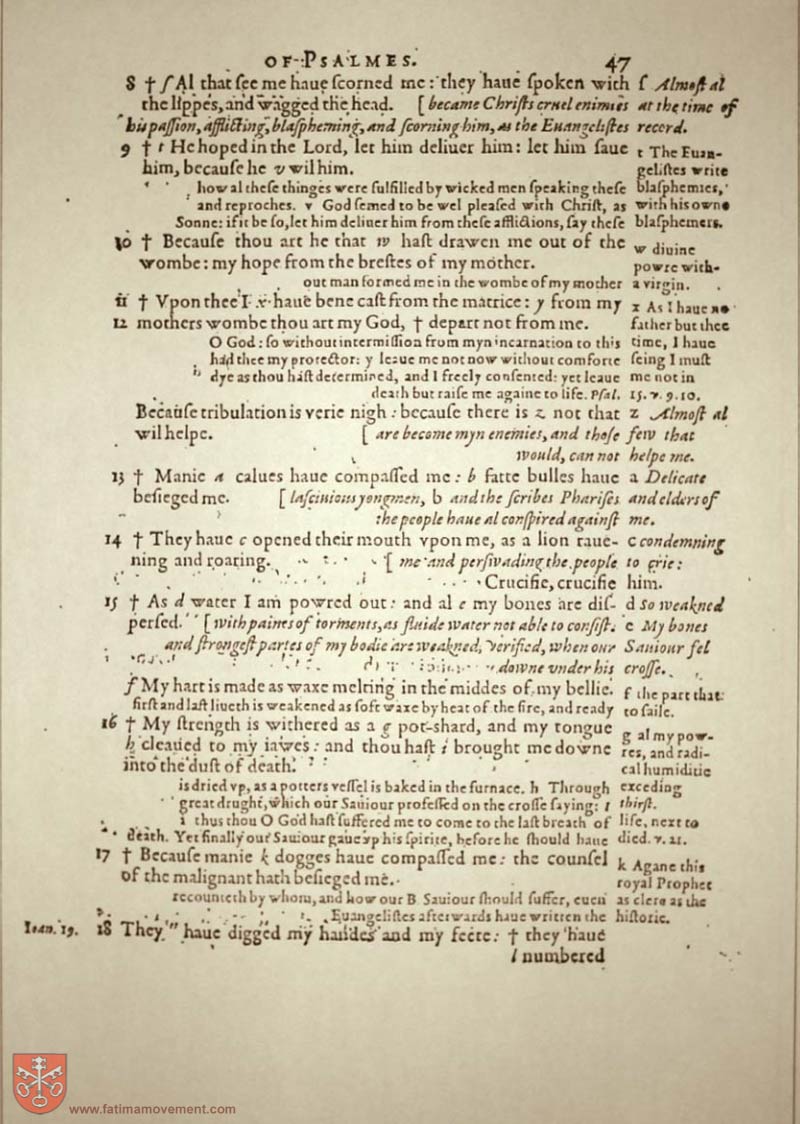 OF PSALMES. 47
8 † ſ Al that ſee me haue ſcorned me: they haue ſpoken with ſ Almoſt al
the lippes, and wagged the head. [ became Chriſts cruel enimies at the time of
his paſsion, afflicting, blaſpheming, and ſcorning him, as the Euangeliſtes record.
9 † t He hoped in the Lord, let him deliuer him: let him ſaue t The Euan-
him, becauſe he v wil him. geliſtes write
how al theſe thinges were fulfilled by wicked men ſpeaking theſe blaſphemies,
and reproches. v God ſemed to be wel pleaſed with Chriſt, as with his owne
Sonne: if it be ſo, let him deliuer him from theſe afflictions, ſay theſe blaſphemers.
10 † Becauſe thou art he that w haſt drawen me out of the w diuine
wombe: my hope from the breſtes of my mother. powre with-
out man formed me in the wombe of my mother a virgin.
11 † Vpon thee I x haue bene caſt from the matrice: y from my x As I haue no
12 mothers wombe thou art my God, † depart not from me. father but thee
O God: ſo without intermiſſion from myn incarnation to this time, I haue
had thee my protector: y leaue me not now without comforte ſeing I muſt
dye as thou haſt determined, and I freely conſented: yet leaue me not in
death but raiſe me againe to life. Pſal. 15. v. 9. 10.
Becauſe tribulation is verie nigh: becauſe there is z not that z Almoſt al
wil helpe. [ are become myn enemies, and thoſe few that
would, can not helpe me.
13 † Manie a calues haue compaſſed me: b fatte bulles haue a Delicate
beſieged me. [ laſciuious yongmen, b and the ſcribes Phariſes and elders of
the people haue al conſpired againſt me.
14 † They haue c opened their mouth vpon me, as a lion raue- c condemning
ning and roaring. [ me and perſwading the people to crie:
Crucifie, crucifie him.
15 † As d water I am powred out: and al e my bones are diſ- d So weakned
perſed. [ with paines of torments, as fluide water not able to conſiſt. e My bones
and ſtrongeſt partes of my bodie are weakned, verified, when our Sauiour fel
downe vnder his croſſe.
f My hart is made as waxe melting in the middes of my bellie. f the part that
firſt and laſt liueth is weakened as ſoft waxe by heat of the fire, and ready to faile.
16 † My ſtrength is withered as a g pot-shard, and my tongue g al my pow-
h cleaued to my iawes: and thou haſt i brought me downe res, and radi-
into the duſt of death. cal humiditie
is dried vp, as a potters veſſel is baked in the furnace. h Through exceding
great drught, which our Sauiour profeſſed on the croſſe ſaying: I thirſt.
i thus thou O God haſt ſuffered me to come to the laſt breath of life, next to
death. Yet finally our Sauiour gaue vp his ſpirite, before he ſhould haue died. v. 21.
17 † Becauſe manie k dogges haue compaſſed me: the counſel k Agane this
of the malignant hath beſieged me. royal Prophet
recounteth by whom, and how our B Sauiour ſhould ſuffer, euen as clere as the
Euangeliſtes afterwards haue written the hiſtorie.
Ioan. 19. 18 They " haue digged my handes and my feete: † they haue
l numbered
www.fatimamovement.com